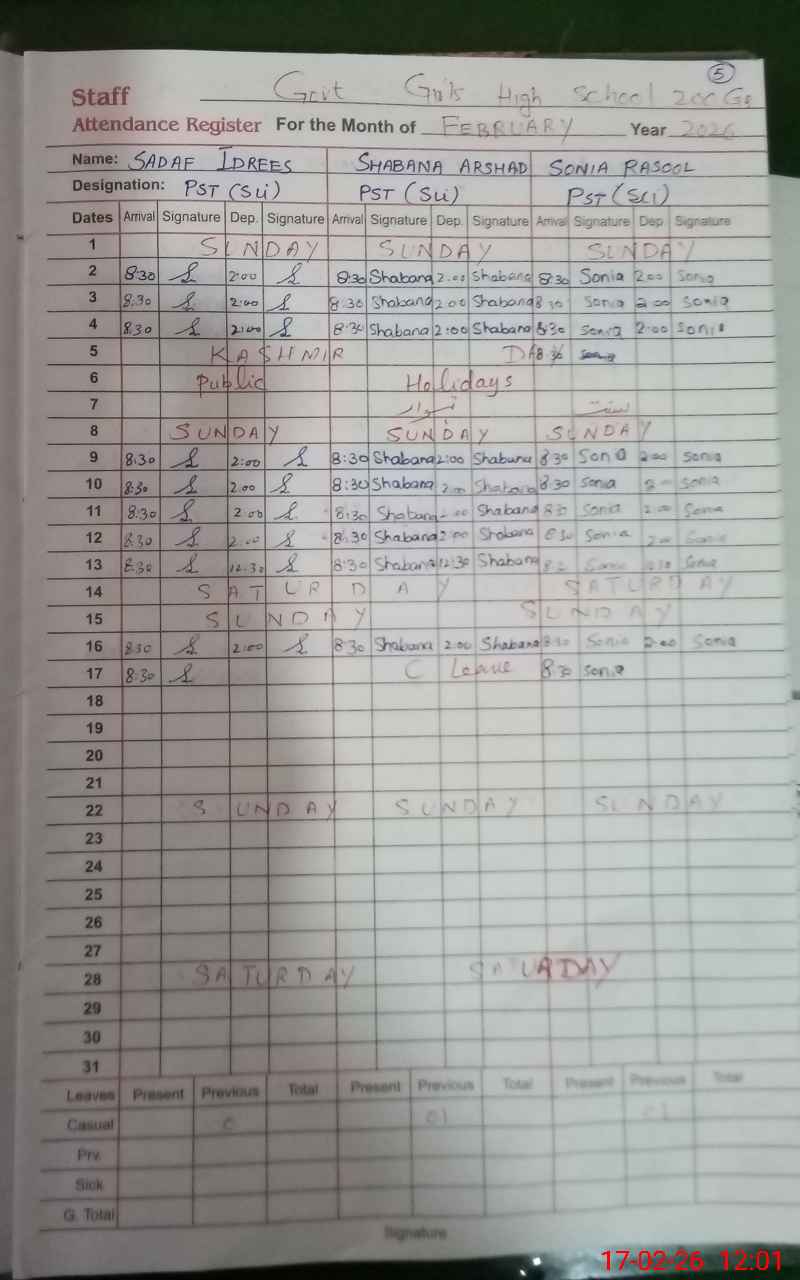 5
Staff Govt Girls High School 200 GB
Attendance Register For the Month of FEBRUARY Year 2026
Name: SADAF IDREES SHABANA ARSHAD SONIA RASOOL
Designation: PST (Sci) PST (Sci) PST (Sci)
Dates Arrival Signature Dep. Signature Arrival Signature Dep. Signature Arrival Signature Dep Signature
1 SUNDAY SUNDAY SUNDAY
2 8:30 S 2:00 S 8:30 Shabana 2:00 Shabana 8:30 Sonia 2:00 Sonia
3 8:30 S 2:00 S 8:30 Shabana 2:00 Shabana 8:30 Sonia 2:00 Sonia
4 8:30 S 2:00 S 8:30 Shabana 2:00 Shabana 8:30 Sonia 2:00 Sonia
5 KASHMIR
6 Public Holidays
7
8 SUNDAY SUNDAY SUNDAY
9 8:30 S 2:00 S 8:30 Shabana 2:00 Shabana 8:30 Sonia 2:00 Sonia
10 8:30 S 2:00 S 8:30 Shabana 2:00 Shabana 8:30 Sonia Sonia
11 8:30 S 2:00 S 8:30 Shabana 2:00 Shabana 8:30 Sonia 2:00 Sonia
12 8:30 S 2:00 S 8:30 Shabana 2:00 Shabana 8:30 Sonia 2:00 Sonia
13 8:30 S 12:30 S 8:30 Shabana 12:30 Shabana Sonia Sonia
14 SATURDAY SATURDAY
15 SUNDAY SUNDAY
16 8:30 S 2:00 S 8:30 Shabana 2:00 Shabana 8:30 Sonia 2:00 Sonia
17 8:30 S C Leave 8:30 Sonia
18
19
20
21
22 SUNDAY SUNDAY SUNDAY
23
24
25
26
27
28 SATURDAY SATURDAY
29
30
31
Leaves Present Previous Total Present Previous Total Present Previous Total
Casual 0 01 01
Prv.
Sick
G. Total
Signature
17-02-26 12:01